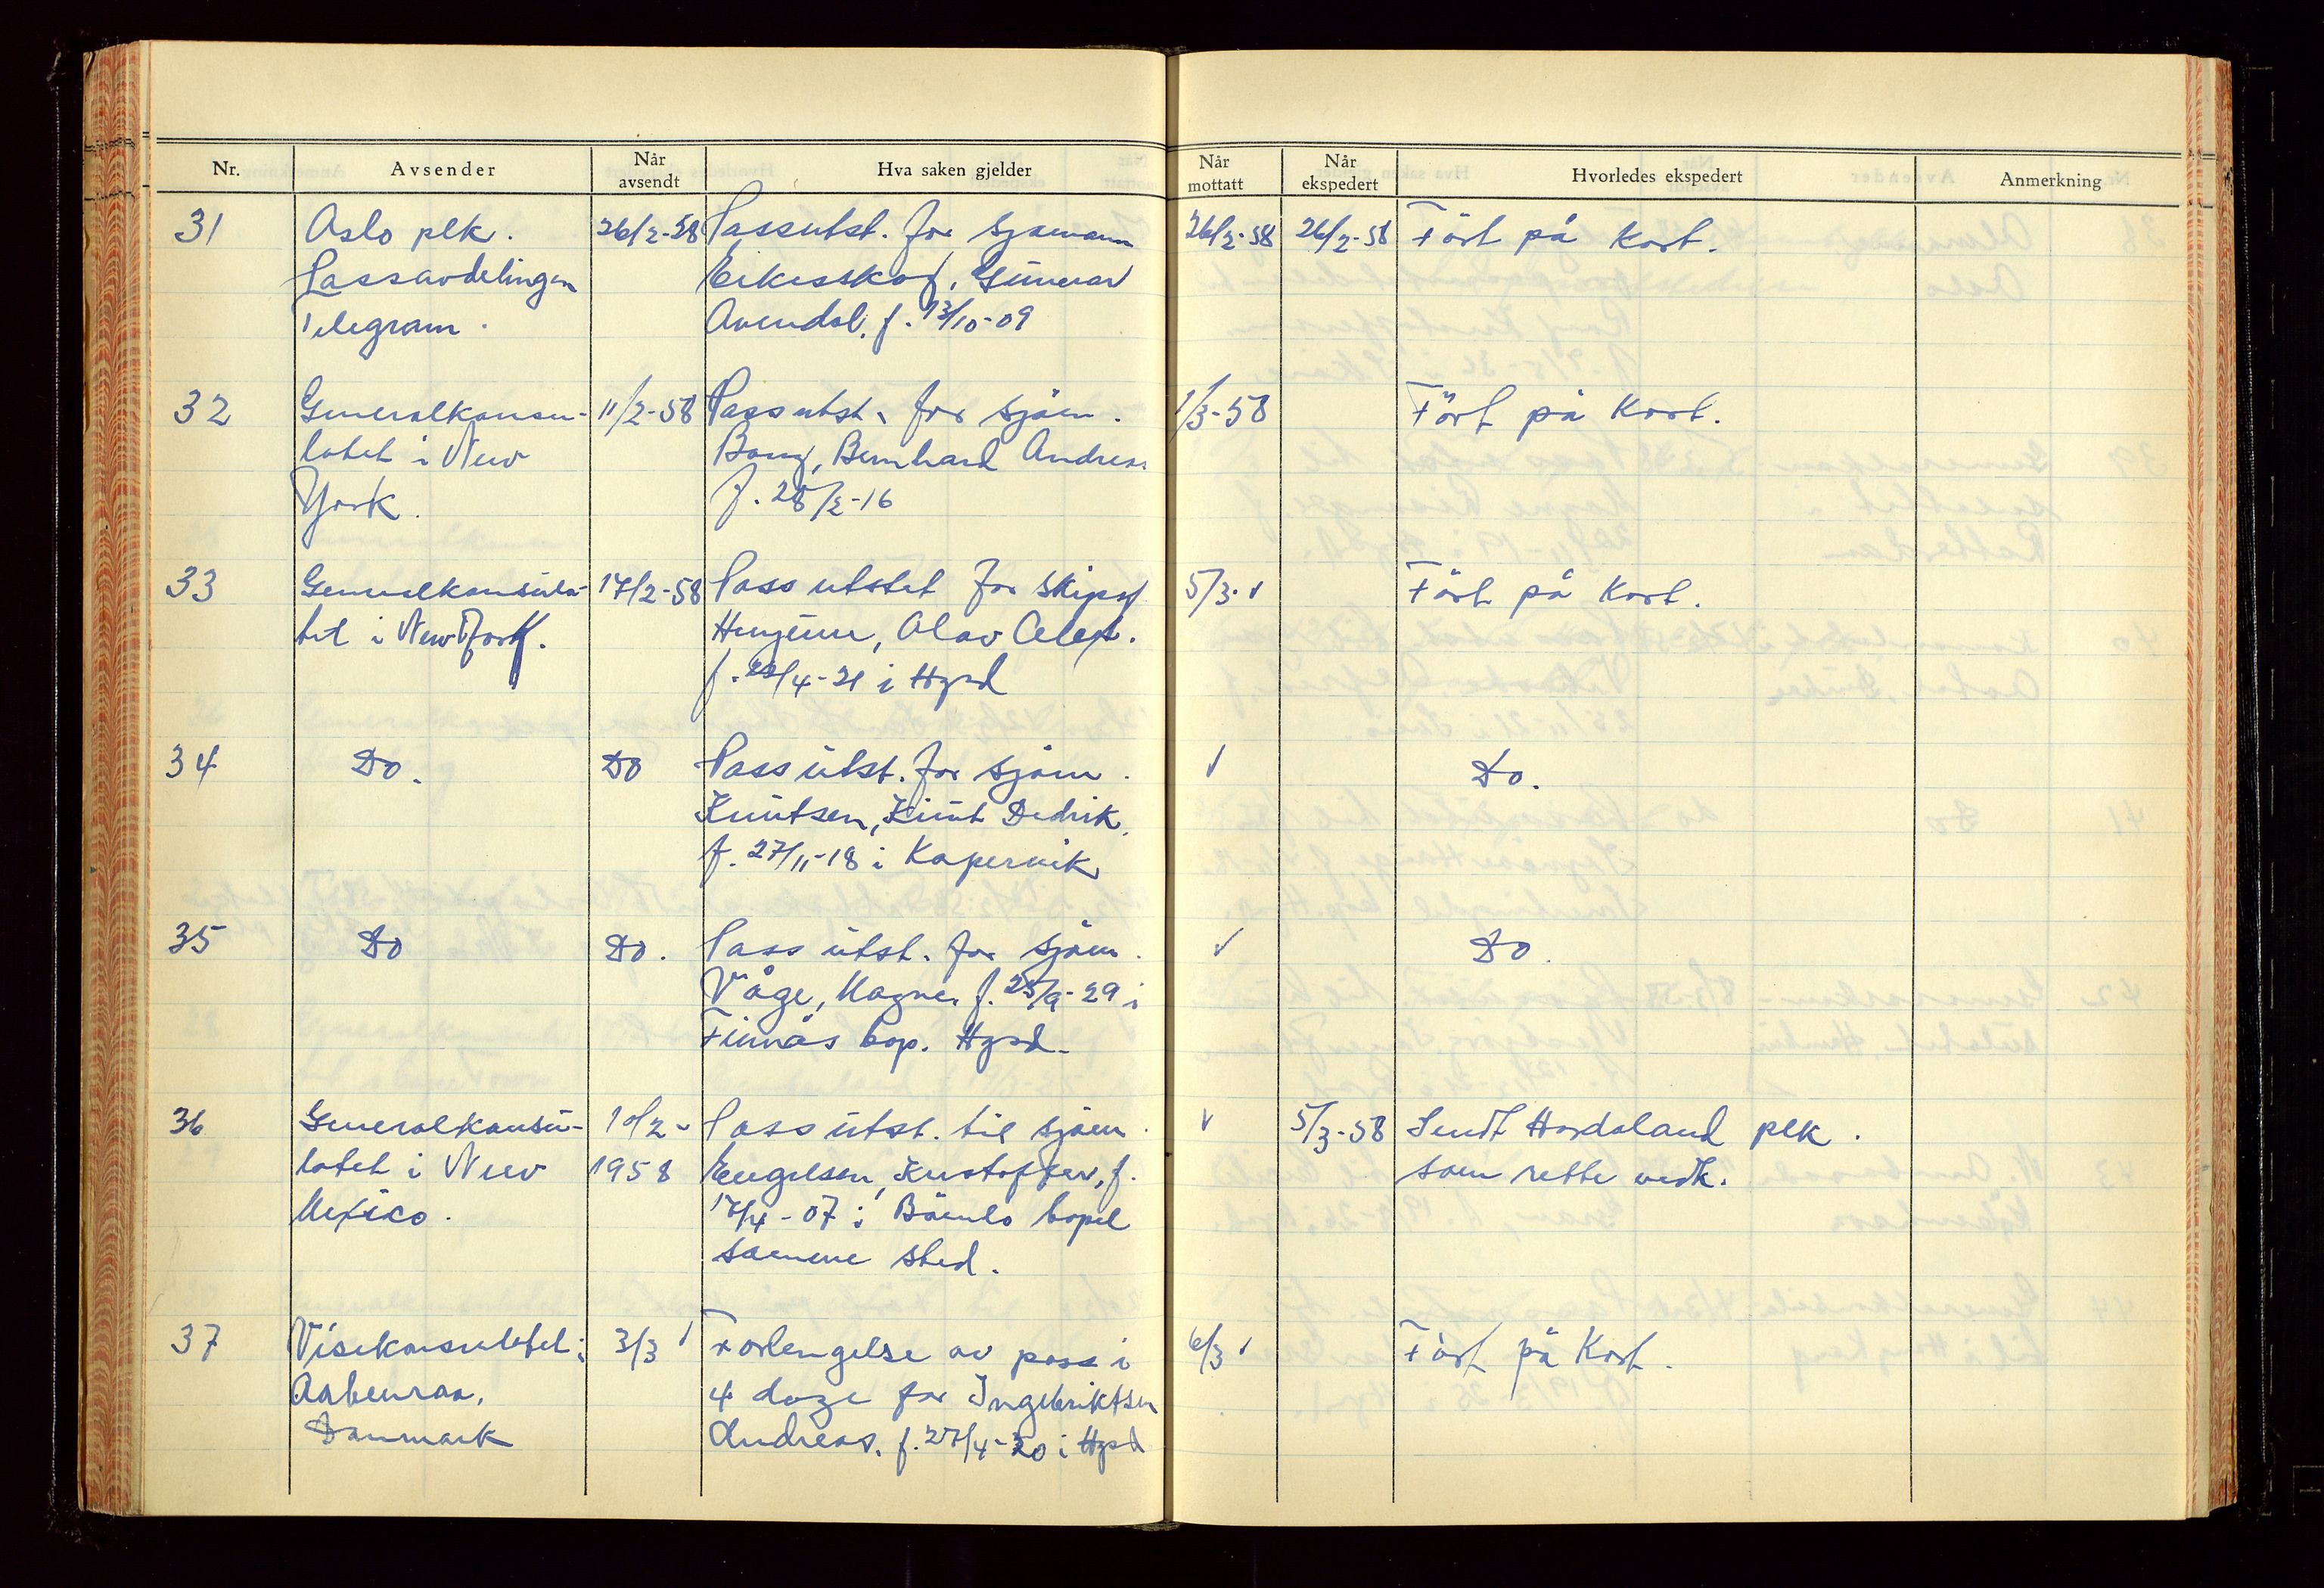 Nr. Avsender Når avsendt Hva saken gjelder Når mottatt Når ekspedert Hvorledes ekspedert Anmerkning
31 Oslo plk. 26/2-58 Passutst. for sjømann 26/2-58 26/2-58 Ført på kort.
Passavdelingen Eikesskog, Gunnar
Telegram. f. 13/10-09
32 Generalkonsu- 11/2-58 Pass utst. for sjøm. 1/3-58 Ført på kort.
latet i New Bernhard Andreas
York. f. 28/2-16
33 Generalkonsula- 17/2-58 Pass utstet for skipsf 5/3-" Ført på kort.
tet i New York. Olav
f. /4-21 i Hgsd
34 Do. Do Pass utst. for sjøm. " Do.
Knutsen, Knut Dedrik,
f. 27/11-18 i Kopervik
35 Do Do. Pass utst. for sjøm. " Do.
Våge, Magne, f. 25/9-29 i
Finnås bop. Hgsd.
36 Generalkonsu- 10/2- Pass utst. til sjøm. " 5/3-58 Sendt Hordaland plk.
latet i New 1958 Engelsen, Kristoffer, f. som rette vedk.
Mexico. 17/4-07 i Bømlo bopel
samme sted.
37 Visekonsulatet i 3/3 " Forlengelse av pass i 6/3 " Ført på kort.
Aabenraa, 4 dage for Ingebriktsen
Danmark Andreas, f. 27/4-20 i Hgsd